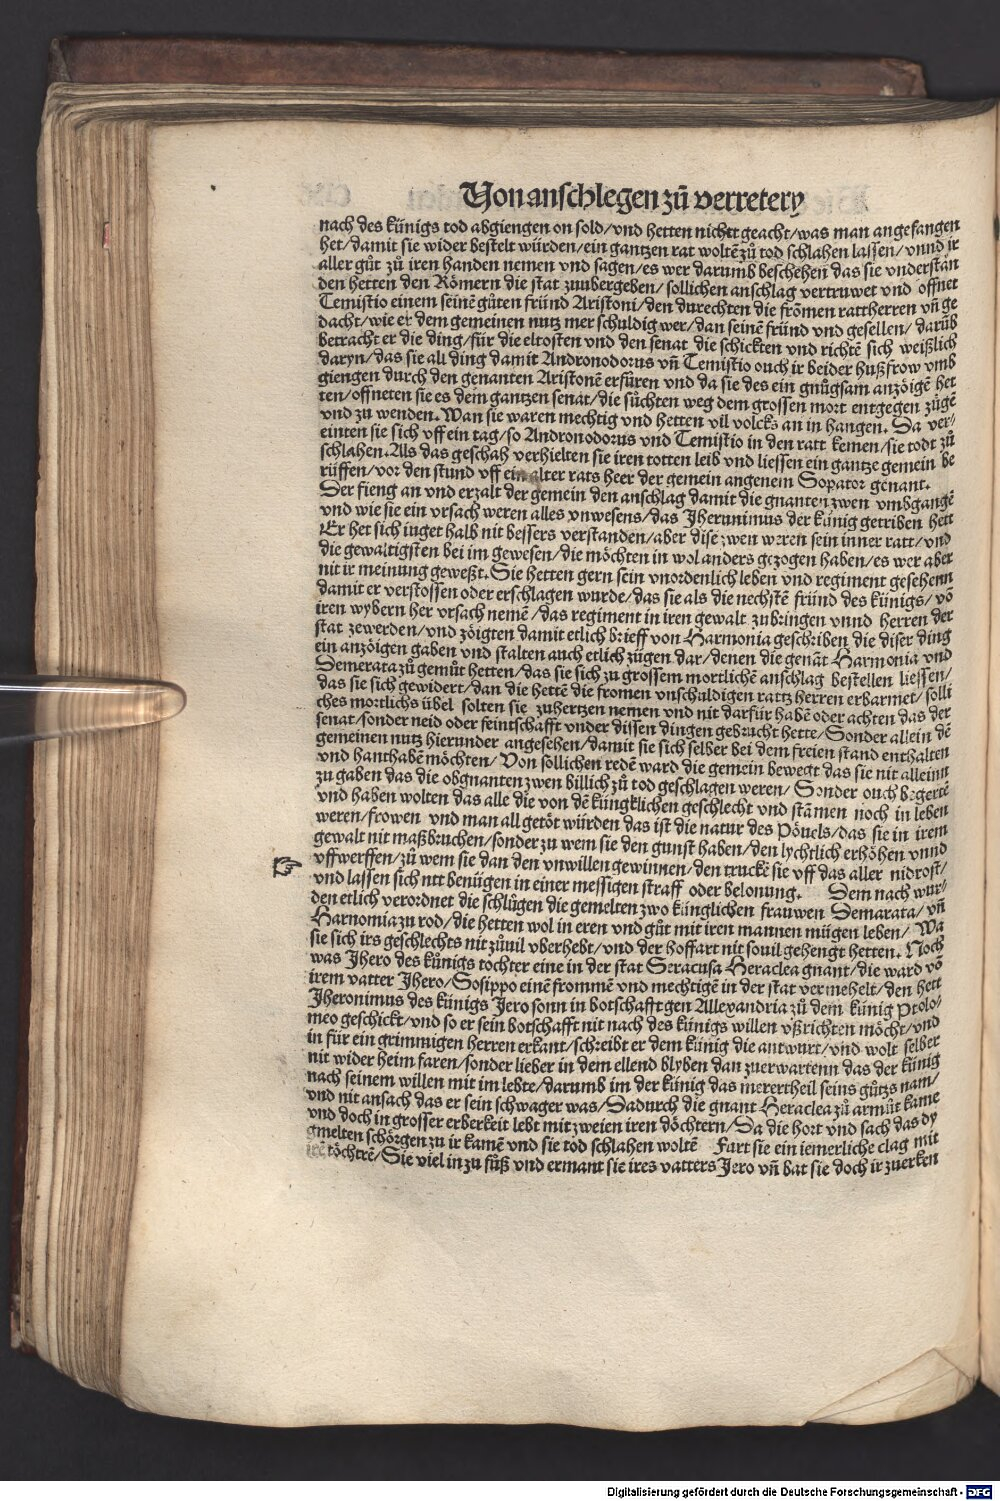 Von anschlegen zů verretery
nach des künigs tod abgiengen on sold/vnd hetten nichtt geacht/was man angefangen
het/damit sie wider bestelt würden/ein gantzen rat woltē zů tod schlahen lassen/vnnd ir
aller gůt zů iren handen nemen vnd sagen/es wer darumb beschehen das sie vnderstan
den hetten den Römern die stat zuubergeben/sollichen anschlag vertruwet vnd offnet
Temistio einem seinē gůten fründ Aristoni/den durechten die frōmen rattherren vn̄ ge
dacht/wie er dem gemeinen nutz mer schuldig wer/dan seinē fründ vnd gesellen/darūb
betracht er die ding/für die eltosten vnd den senat die schickten vnd richtē sich weißlich
daryn/das sie all ding damit Andronodorus vn̄ Temistio ouch ir beider hußfrow vmb
giengen durch den genanten Aristonē erfůren vnd da sie des ein gnůgsam anzöigē het
ten/offneten sie es dem gantzen senat/die sůchten weg dem grossen mort entgegen zůgē
vnd zu wenden. Wan sie waren mechtig vnd hetten vil volcks an in hangen. Da ver-
einten sie sich vff ein tag/so Andronodorus vnd Temistio in den ratt kemen/sie todt zů
schlahen. Als das geschah verhielten sie iren totten leib vnd liessen ein gantze gemein be
rüffen/vor den stund vff ein alter rats heer der gemein angenem Sopator genant.
Der fieng an vnd erzalt der gemein den anschlag damit die gnanten zwen vmbgangē
vnd wie sie ein vrsach weren alles vnwesens/das Jherunimus der künig getriben hett
Er het sich iuget halb nit bessers verstanden/aber dise zwen weren sein inner ratt/vnd
die gewaltigsten bei im gewesen/die möchten in wol anders gezogen haben/es wer aber
nit ir meinung geweßt. Sie hetten gern sein vnordenlich leben vnd regiment gesehenn
damit er verstossen oder erschlagen wurde/das sie als die nechstē fründ des künigs/vō
iren wybern her vrsach nemē/das regiment in iren gewalt zubringen vnnd herren der
stat zewerden/vnd zöigten damit etlich brieff von Harmonia geschriben die diser ding
ein anzöigen gaben vnd stalten auch etlich zügen dar/denen die genāt Harmonia vnd
Demerata zů gemůt hetten/das sie sich zu grossem mortlichē anschlag bestellen liessen/
das sie sich gewidert/dan die hettē die fromen vnschuldigen rattz herren erbarmet/solli
ches mortlichs übel solten sie zuhertzen nemen vnd nit darfür habē oder achten das der
senat/sonder neid oder feintschafft vnder dissen dingen gebrucht hette/Sonder allein dē
gemeinen nutz hierunder angesehen/damit sie sich selber bei dem freien stand enthalten
vnd hanthabē möchten/Von söllichen redē ward die gemein bewegt das sie nit alleinn
zu gaben das die obgnanten zwen billich zů tod geschlagen weren/Sonder ouch begertē
vnd haben wolten das alle die von dē küngklichen geschlecht vnd stāmen noch in leben
weren/frowen vnd man all getöt würden das ist die natur des Pöuels/das sie in irem
gewalt nit maßbruchen/sonder zu wem sie den gunst haben/den lychtlich erhöhen vnnd
vffwerffen/zů wem sie dan den vnwillen gewinnen/den truckē sie vff das aller nidrost/
vnd lassen sich ntt benügen in einer messigen straff oder belonung. Dem nach wur-
den etlich verordnet die schlůgen die gemelten zwo künglichen frauwen Demarata/vn̄
Harnomia zu rod/die hetten wol in eren vnd gůt mit iren mannen mügen leben/Wa
sie sich irs geschlechts nit zůuil vberhebt/vnd der hoffart nit souil gehengt hetten. Noch
was Jhero des künigs tochter eine in der stat Seracusa Heraclea gnant/die ward vō
irem vatter Jhero/Sosippo einē frommē vnd mechtigē in der stat vermehelt/den hett
Jheronimus des künigs Jero sonn in botschafft gen Allexandria zů dem künig Ptolo-
meo geschickt/vnd so er sein botschafft nit nach des künigs willen vßrichten möcht/vnd
in für ein grimmigen herren erkant/schreibt er dem künig die antwurt/vnd wolt selber
nit wider heim faren/sonder lieber in dem ellend blyben dan zuerwartenn das der künig
nach seinem willen mit im lebte/darumb im der künig das merertheil seins gůtzs nam/
vnd nit ansach das er sein schwager was/Dadurch die gnant Heraclea zů armůt kame
vnd doch in grosser erberkeit lebt mit zweien iren döchtern/Da die hort vnd sach das dy
gmelten schörgen zu ir kamē vnd sie tod schlahen woltē Fart sie ein iemerliche clag mit
irē töchtrē/Sie viel in zu fůß vnd ermant sie ires vatters Jero vn̄ bat sie doch ir zuerken
Digitalisierung gefördert durch die Deutsche Forschungsgemeinschaft - DFG